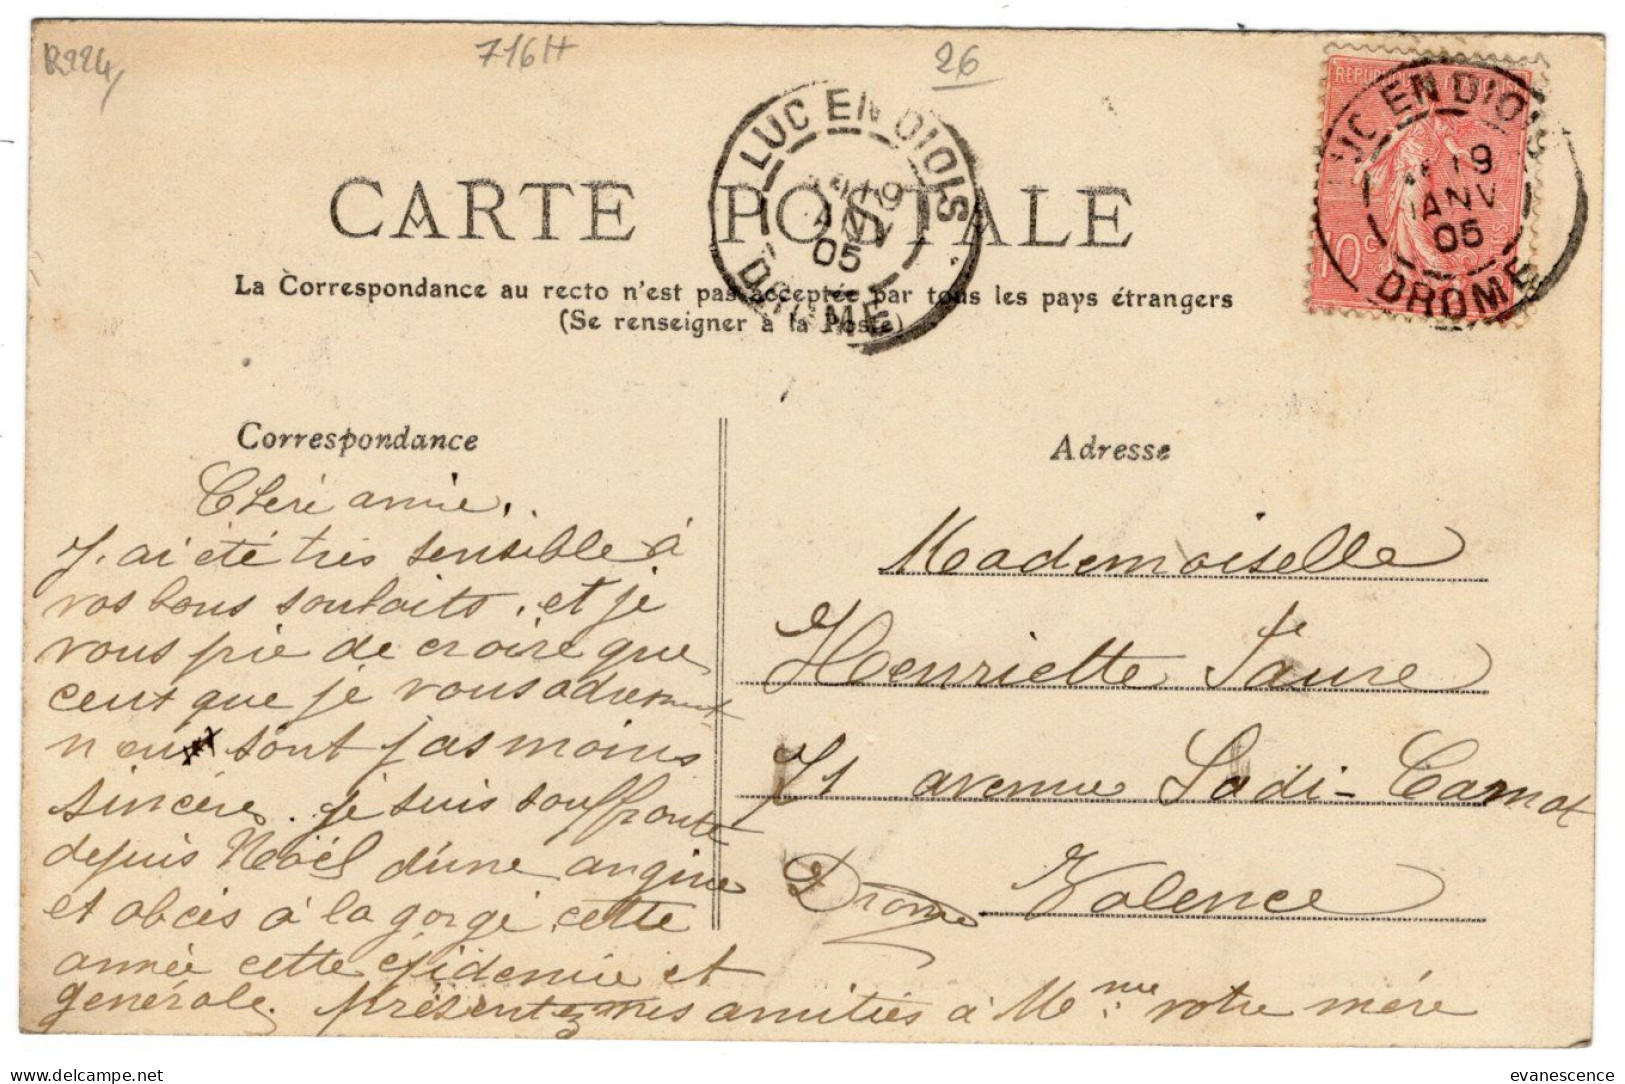 R224
716H
26
LUC EN DIOIS
19
JANV
05
DROME
REPUBLIQUE
10c
LUC EN DIOIS
19
JANV
05
DROME
CARTE POSTALE
La Correspondance au recto n'est pas acceptée par tous les pays étrangers
(Se renseigner à la Poste)
Correspondance
Chère amie.
J'ai été très sensible à
vos bons souhaits. et je
vous prie de croire que
ceux que je vous adresse
n eux sont pas moins
sincère. je suis souffrante
depuis Noël d'une angine
et abcès à la gorge cette
année cette épidemie et
generale. présentez mes amitiés à Mme votre mére
Adresse
Mademoiselle
Henriette Faure
71 avenue Sadi-Carnot
Valence
Drome
evanescence